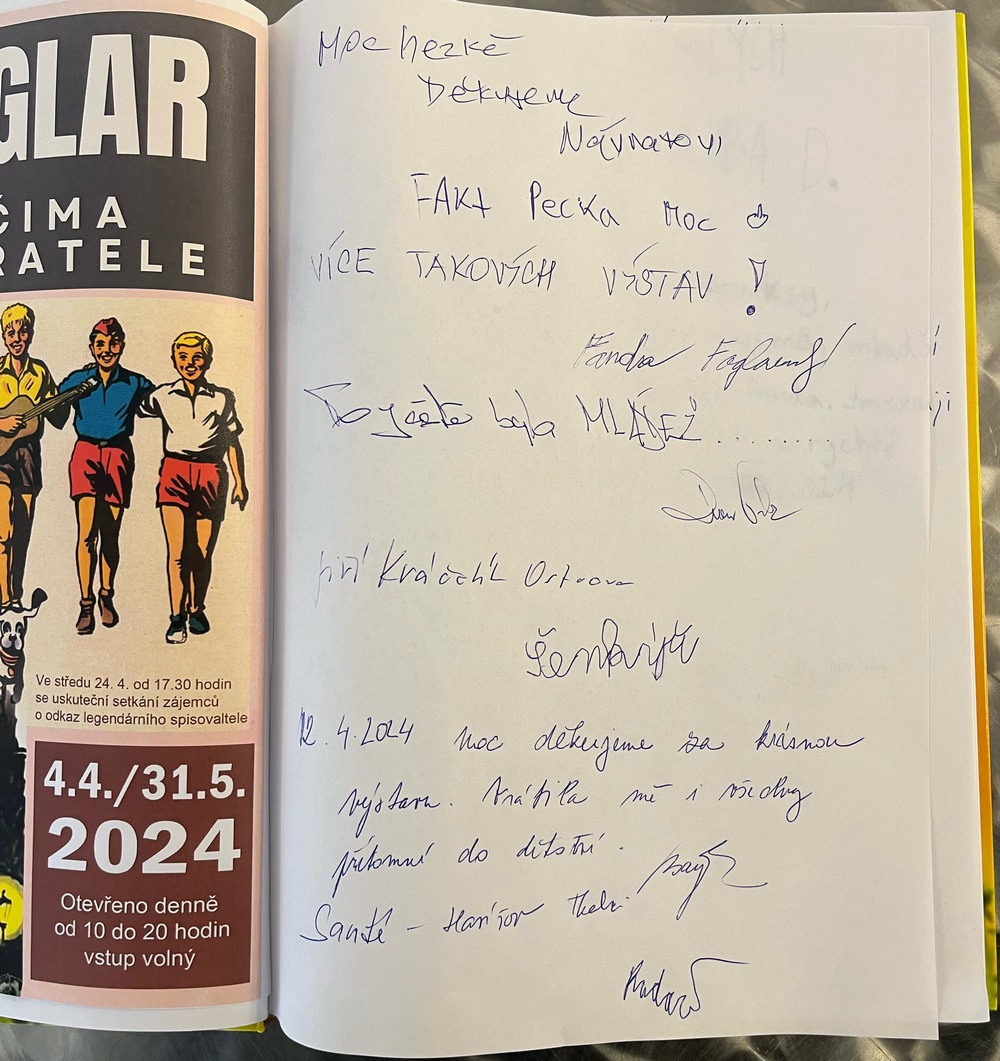 GLAR
ČIMA
RATELE
Ve středu 24. 4. od 17.30 hodin
se uskuteční setkání zájemců
o odkaz legendárního spisovaltele
4.4./31.5.
2024
Otevřeno denně
od 10 do 20 hodin
vstup volný
Moc hezké
Děkujeme
Návratovi
FAKT Pecka Moc
VÍCE TAKOVÝCH VÝSTAV !
Fanda
To ještě byla MLÁDEŽ ........
Jiří Ostrava
12.4.2024 Moc děkujeme za krásnou
výstavu. Vrátila mě i všechny
přítomné do dětství.
Santé - Havířov